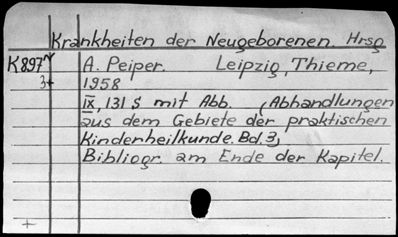 Krankheiten der Neugeborenen. Hrsg
K897N A. Peiper. Leipzig, Thieme,
3+ 1958
IX, 131 S mit Abb. (Abhandlungen
aus dem Gebiete der praktischen
Kinderheilkunde. Bd. 3)
Bibliogr. am Ende der Kapitel.
+